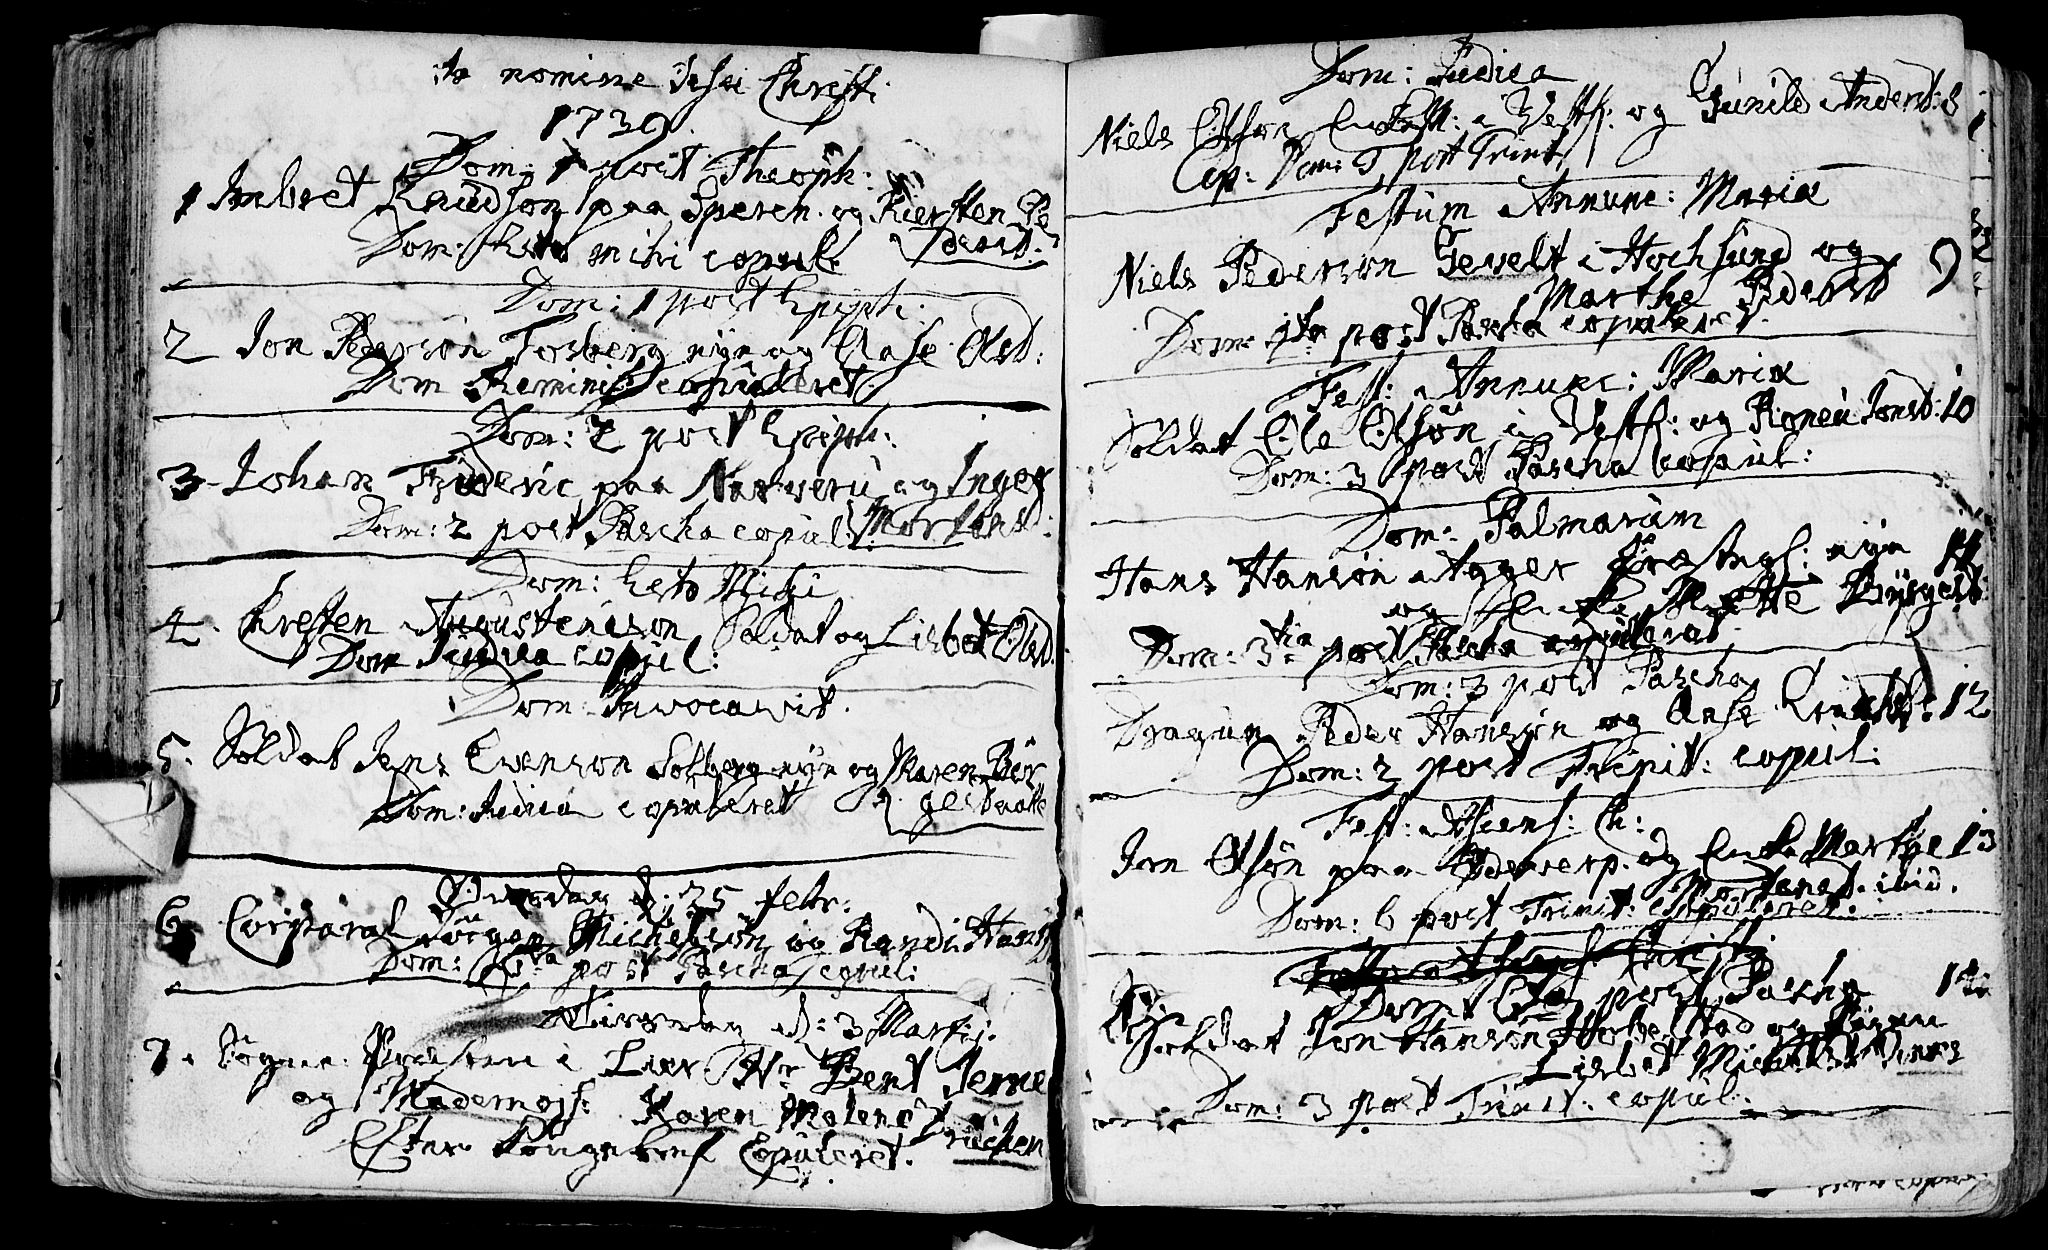 In nomine Jesu Christi
1739.
Dom: 1 post Theoph:
1 Imbret Knudsøn paa Speren. og Kiersten Pe
Dom: Esto mihi copul. dersd.
Dom: 1 post Epiph:
2 Jon Pedersøn Fosberg nyn og Aase Olsd:
Dom Reminis: copuleret.
Dom: 2 post Epiph:
3 Johan Frideric paa Narverü og Inger
Dom: 2 post Pascha copul: Mortensd:
Dom: Esto Mihi
4. Kresten Augustenisøn Soldat og Lisbet Olsd.
Dom Judica copul:
Dom: Invocavit.
5. Soldat Jens Evensøn Solberg nyn og Maren Bør
Dom: Judica copuleret gerdatte
Onsdag d: 25 febr:
6 Corporal Jørgen Michelsøn og Randi Hansd
Dom: post Pascha copul:
Tirsdag d: 3 Martij.
7. Sogne Præsten i Lier Hr Bent
og Mademois: Karen Malene
Efter Kongebref Copuleret.
Dom: Judica
Niels Olsøn i Vestf: og Gunild Andersd: 8
Cop: Dom: post Trinit
Festum Annunc: Mariæ
Niels Pedersøn Gevelt i Hochsund og 9
Marthe Pedersd
Dom: post Pascha copuleret.
Fest: Annunc: Mariæ
Soldat Ole Olsøn i Vestf: og Ronou Jonsd: 10
Dom: 3 post Pascha Copul:
Dom: Palmarum
Hans Hansøn Agger nyn 11
og Mette Byrgesd:
Dom: 3tia post Pascha copuleret
Dom: 3 post Pascha
Dragun Peder Hansøn og Aase 12
Dom: 2 post Trinit: copul:
Fest: Ascens: Ch:
Jon Olsøn paa og Enke Marthe 13
Mortensd. ibid.
Dom: 6 post Trinit: copuleret.
Dom: post Pascha 14
Soldat Jon Hansøn og Pigen
Lisbet
Dom: 3 post Trinit: copul: